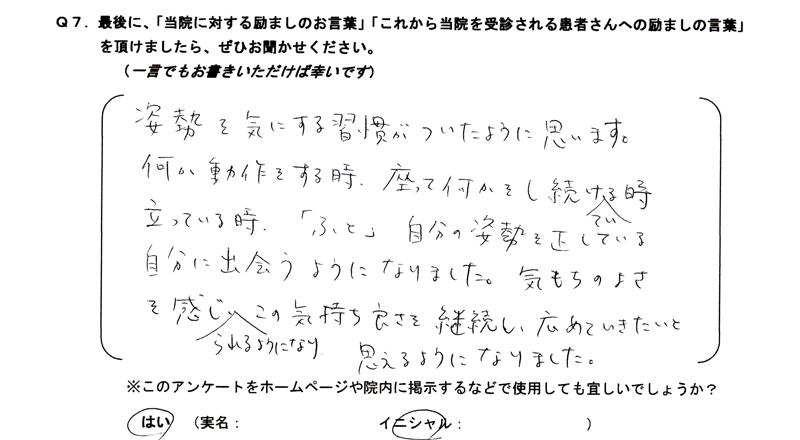 Q7．最後に、「当院に対する励ましのお言葉」「これから当院を受診される患者さんへの励ましの言葉」
を頂けましたら、ぜひお聞かせください。
（一言でもお書きいただけば幸いです）
姿勢を気にする習慣がついたように思います。
何か動作をする時、座って何かをし続ける時
てい
立っている時、「ふと」自分の姿勢を正している
自分に出会うようになりました。気もちのよさ
を感じ、この気持ち良さを継続し、広めていきたいと
られるようになり
思えるようになりました。
※このアンケートをホームページや院内に掲示するなどで使用しても宜しいでしょうか？
はい （実名： イニシャル： ）